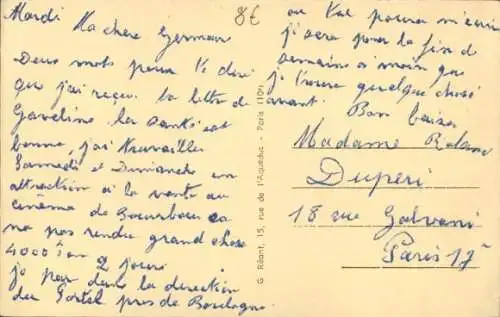 Mardi
8€
Ma chere Germaine
Deux mots pour te dire
que j'ai reçu la lettre de
Gaveline la santé est
bonne, j'ai travailler
Samedi et Dimanche en
attraction a la vente au
cinéma de
na pas rendu grand chose
4000 2 jours
je par dans la direction
du Portel pres de Boulogne
ou pourra m'écrire
j'serai pour la fin de
semaine a moin que
je trouve quelque chose
avant.
Bon baiser
G. Réant, 15, rue de l'Aqueduc - Paris (10e)
Madame Roland
Duperi
18 rue Galvani
Paris 17e